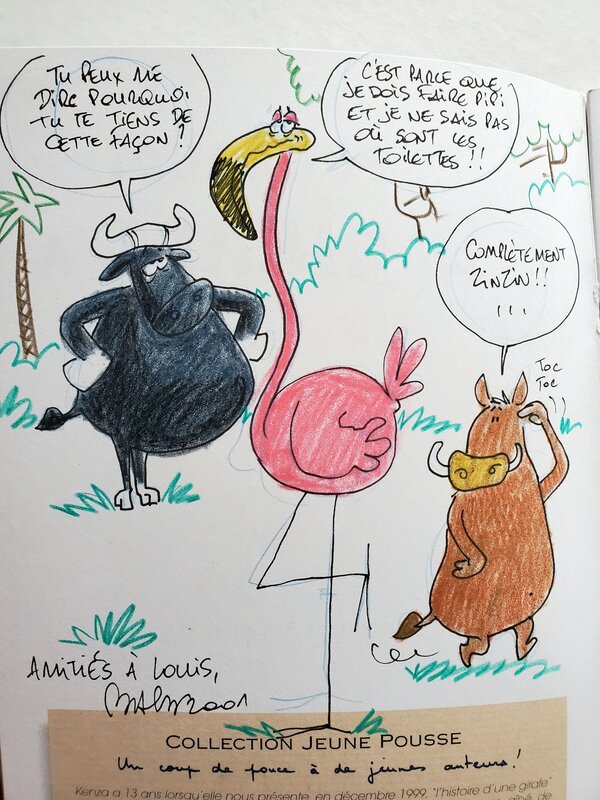 TU PEUX ME
DIRE POURQUOI
TU TE TIENS DE
CETTE FAÇON !
C'EST PARCE QUE
JE DOIS FAIRE PIPI
ET JE NE SAIS PAS
OÙ SONT LES
TOILETTES !!
COMPLÈTEMENT
ZINZIN !!
...
TOC
TOC
AMITIÉS À LOUIS,
2001
COLLECTION JEUNE POUSSE
Un coup de pouce à de jeunes auteurs !
Kenza a 13 ans lorsqu'elle nous présente, en décembre 1999, "l'histoire d'une girafe"